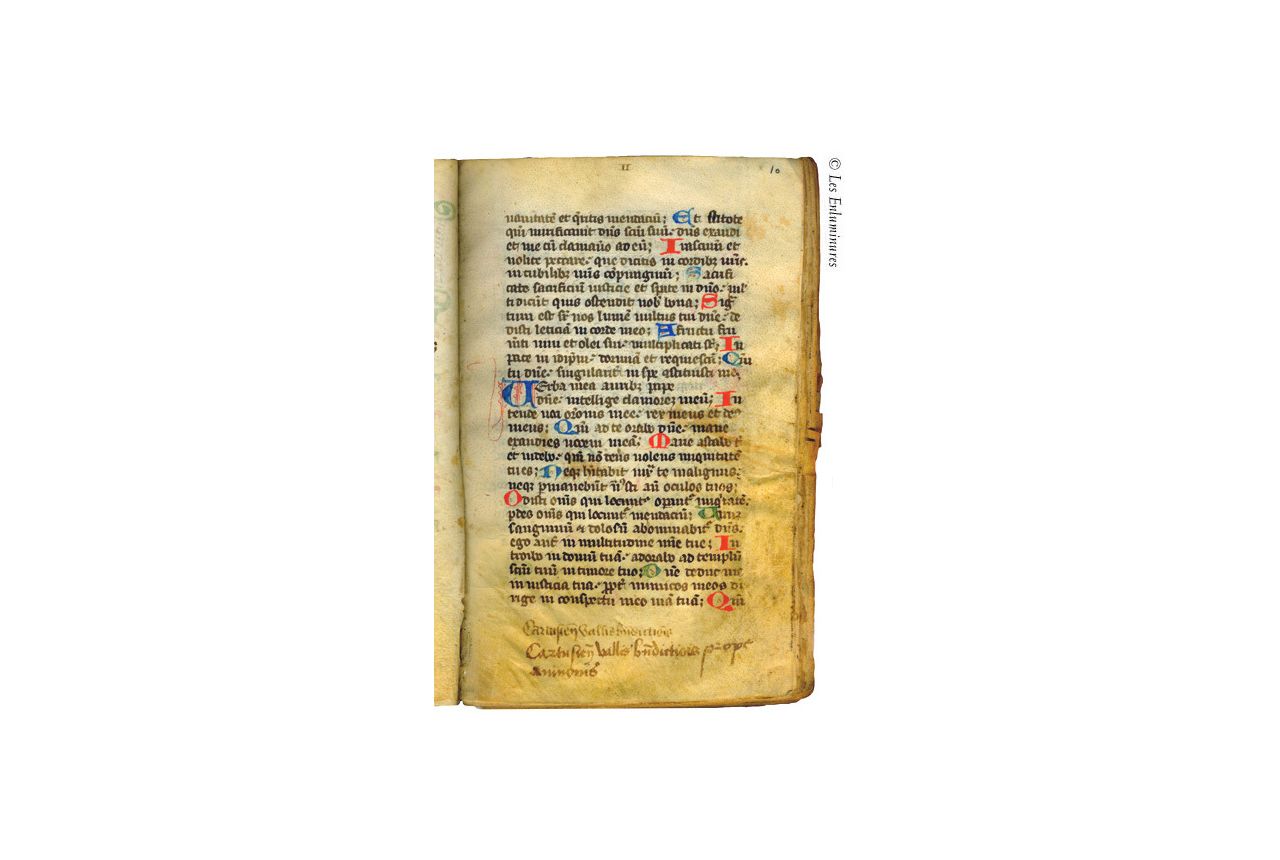 II
10
vanitatē et q̄ritis mendaciū; Et scitote
qm̄ mirificauit dn̄s sc̄m suū· dn̄s exaudi
et me cū clamauō ad eū; Irascimī et
nolite peccare· que dicitis in cordibꝫ vr̄is·
in cubilibꝫ vr̄is cōpungimī; Sacrifi
cate sacrificiū iusticie et sp̄ate in dn̄o· ml̓
ti dicūt quis ostendit nob̓ bona; Sig̅
tum est sr̄ nos lumē vultus tui dn̄e· de
disti leticiā in corde meo; A fructu fru
m̄ti vini et olei sui· multiplicati st̄; In
pace in idip̄m· dormiā et requiescā; Qm̄
tu dn̄e· singularit̓ in spe ɔstituisti me,
Uerba mea auribꝫ p̄cipe
dn̄e· intellige clamorē meū; In
tende voci or̄onis mee· rex meus et de᷒
meus; Qm̄ ad te orabo dn̄e· mane
exaudies vocem meā; Mane astabo t̄
et videbo· qm̄ nō de᷒ volens iniquitatē
tu es; Neqꝫ h̄itabit iux̄ te malignus·
neqꝫ p̄manebūt iniusti añ oculos tuos;
Odisti om̄s qui operant̓ iniq̓tatē·
p̄des om̄s qui locunt̓ mendaciū; Uirū
sanguinū & dolosū abominabit̓ dn̄s·
ego aut̄ in multitudine mīe tue; In
troibo in domū tuā· adorabo ad templū
sc̄m tuū in timore tuo; Dn̄e deduc me
in iusticia tua· ꝓpt̓ inimicos meos di
rige in conspectu meo viā tuā; Qm̄
Cartusien̄ Vallis bn̄dictiōis
Cartusien̄ Vallis bn̄dictiōis prope
avinionē
© Les Enluminures